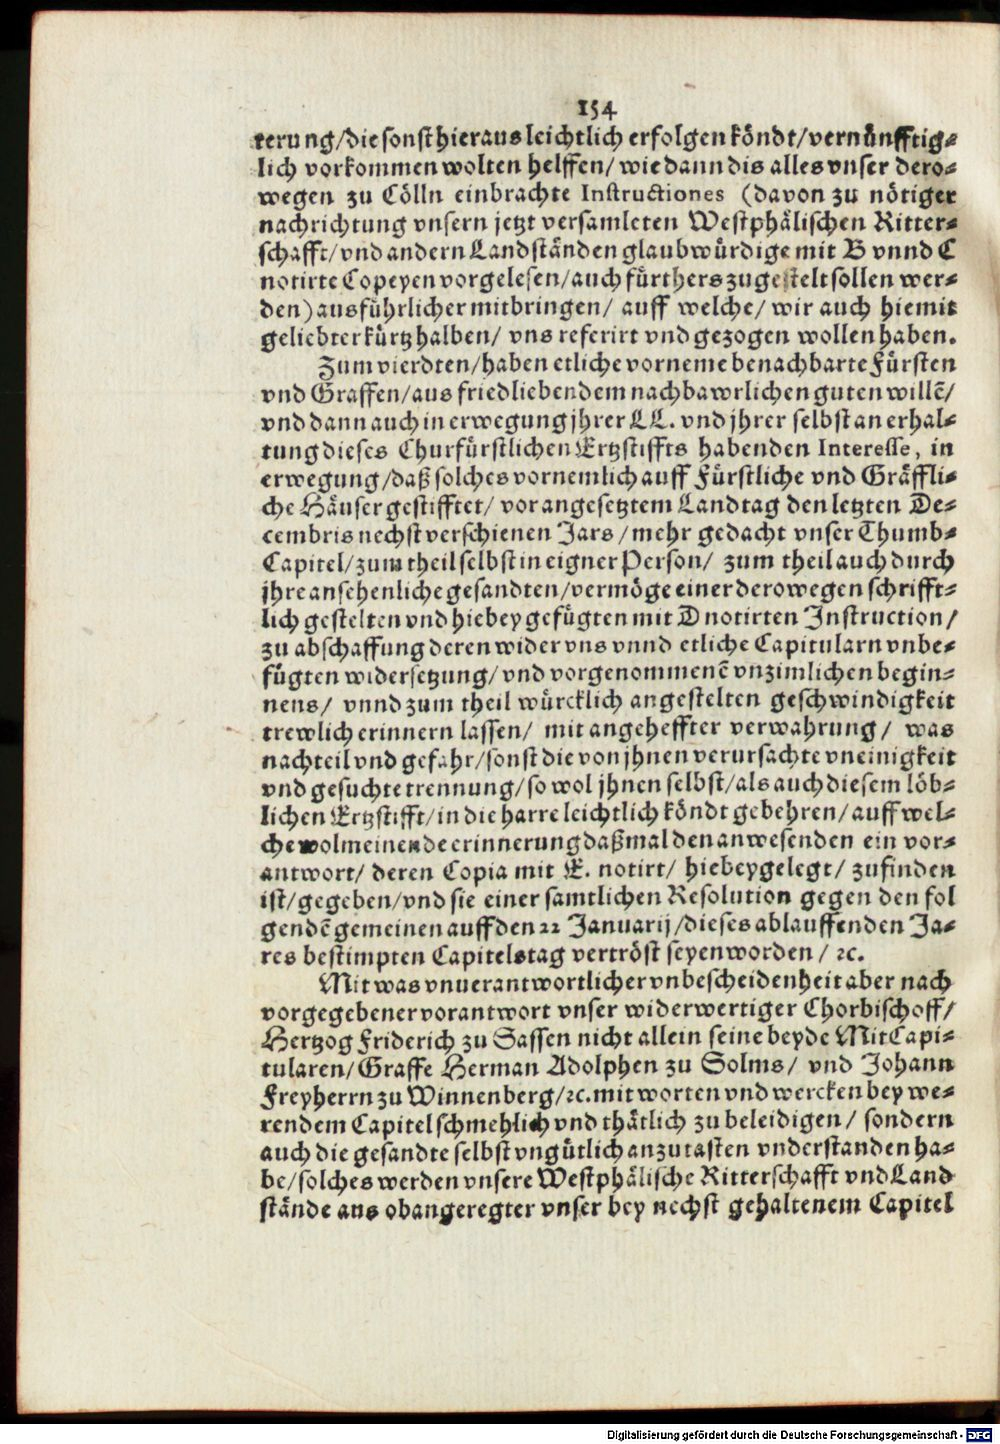 154
terung/die sonst hieraus leichtlich erfolgen köndt/vernünfftig-
lich vorkommen wolten helffen/ wie dann dis alles vnser dero-
wegen zu Cölln einbrachte Instructiones (davon zu nötiger
nachrichtung vnsern jetzt versamleten Westphälischen Ritter-
schafft/vnd andern Landständen glaubwürdige mit B vnnd C
notirte Copeyen vorgelesen/auch fürthers zugestelt sollen wer-
den) ausführlicher mitbringen/ auff welche/ wir auch hiemit
geliebter kürtz halben/ vns referirt vnd gezogen wollen haben.
Zum vierdten/haben etliche vorneme benachbarte Fürsten
vnd Graffen/aus friedliebendem nachbawrlichen guten willē/
vnd dann auch in erwegung jhrer LL. vnd jhrer selbst an erhal-
tung dieses Churfürstlichen Ertzstiffts habenden Interesse, in
erwegung/daß solches vornemlich auff Fürstliche vnd Gräffli-
che Häuser gestifftet/ vor angesetztem Landtag den letzten De-
cembris nechst verschienen Jars/mehr gedacht vnser Thumb-
Capitel/zum theil selbst in eigner Person/ zum theil auch durch
jhre ansehenliche gesandten/vermöge einer derowegen schrifft-
lich gestelten vnd hiebey gefügten mit D notirten Instruction/
zu abschaffung deren wider vns vnnd etliche Capitularn vnbe-
fügten widersetzung/vnd vorgenommenē vnzimlichen begin-
nens/ vnnd zum theil würcklich angestelten geschwindigkeit
trewlich erinnern lassen/ mit angeheffter verwahrung/ was
nachteil vnd gefahr/sonst die von jhnen verursachte vneinigkeit
vnd gesuchte trennung/so wol jhnen selbst/als auch diesem löb-
lichen Ertzstifft/in die harre leichtlich köndt gebehren/auff wel-
che wolmeinende erinnerung daßmal den anwesenden ein vor-
antwort/ deren Copia mit E. notirt/ hiebey gelegt/ zufinden
ist/gegeben/vnd sie einer samtlichen Resolution gegen den fol
gendē gemeinen auff den 22 Januarij/dieses ablauffenden Ja-
res bestimpten Capitelstag vertröst seyen worden/ ꝛc.
Mit was vnuerantwortlicher vnbescheidenheit aber nach
vorgegebener vorantwort vnser widerwertiger Chorbischoff/
Hertzog Friderich zu Sassen nicht allein seine beyde MitCapi-
tularen/Graffe Herman Adolphen zu Solms/ vnd Johann
Freyherrn zu Winnenberg/ꝛc. mit worten vnd wercken bey we-
rendem Capitel schmehlich vnd thätlich zu beleidigen/ sondern
auch die gesandte selbst vngütlich anzutasten vnderstanden ha-
be/solches werden vnsere Westphälische Ritterschafft vnd Land
stände aus obangeregter vnser bey nechst gehaltenem Capitel
Digitalisierung gefördert durch die Deutsche Forschungsgemeinschaft - DFG